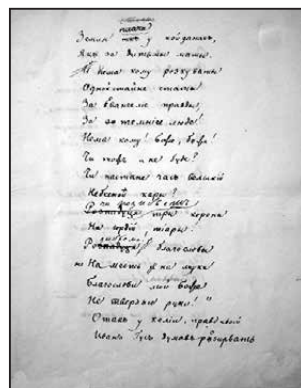 плаче
Земля у кайданахъ,
Якъ за дитьмы маты.
Нема кому розкуваты
Одностайне статы
За евангелие правды,
За темніе люде!
Нема кому! боже, боже!
Чи тожъ и не буде?
Чи настане часъ великій
Небесной кары?
Розпадуця три короны
На гордій тіары!
Розпадуця! благословы
На месть и на муки
Благословы мои боже
Не твердыи руки!"
Отакъ у келіи, правдивый
Иванъ Гусъ думавъ розирвать